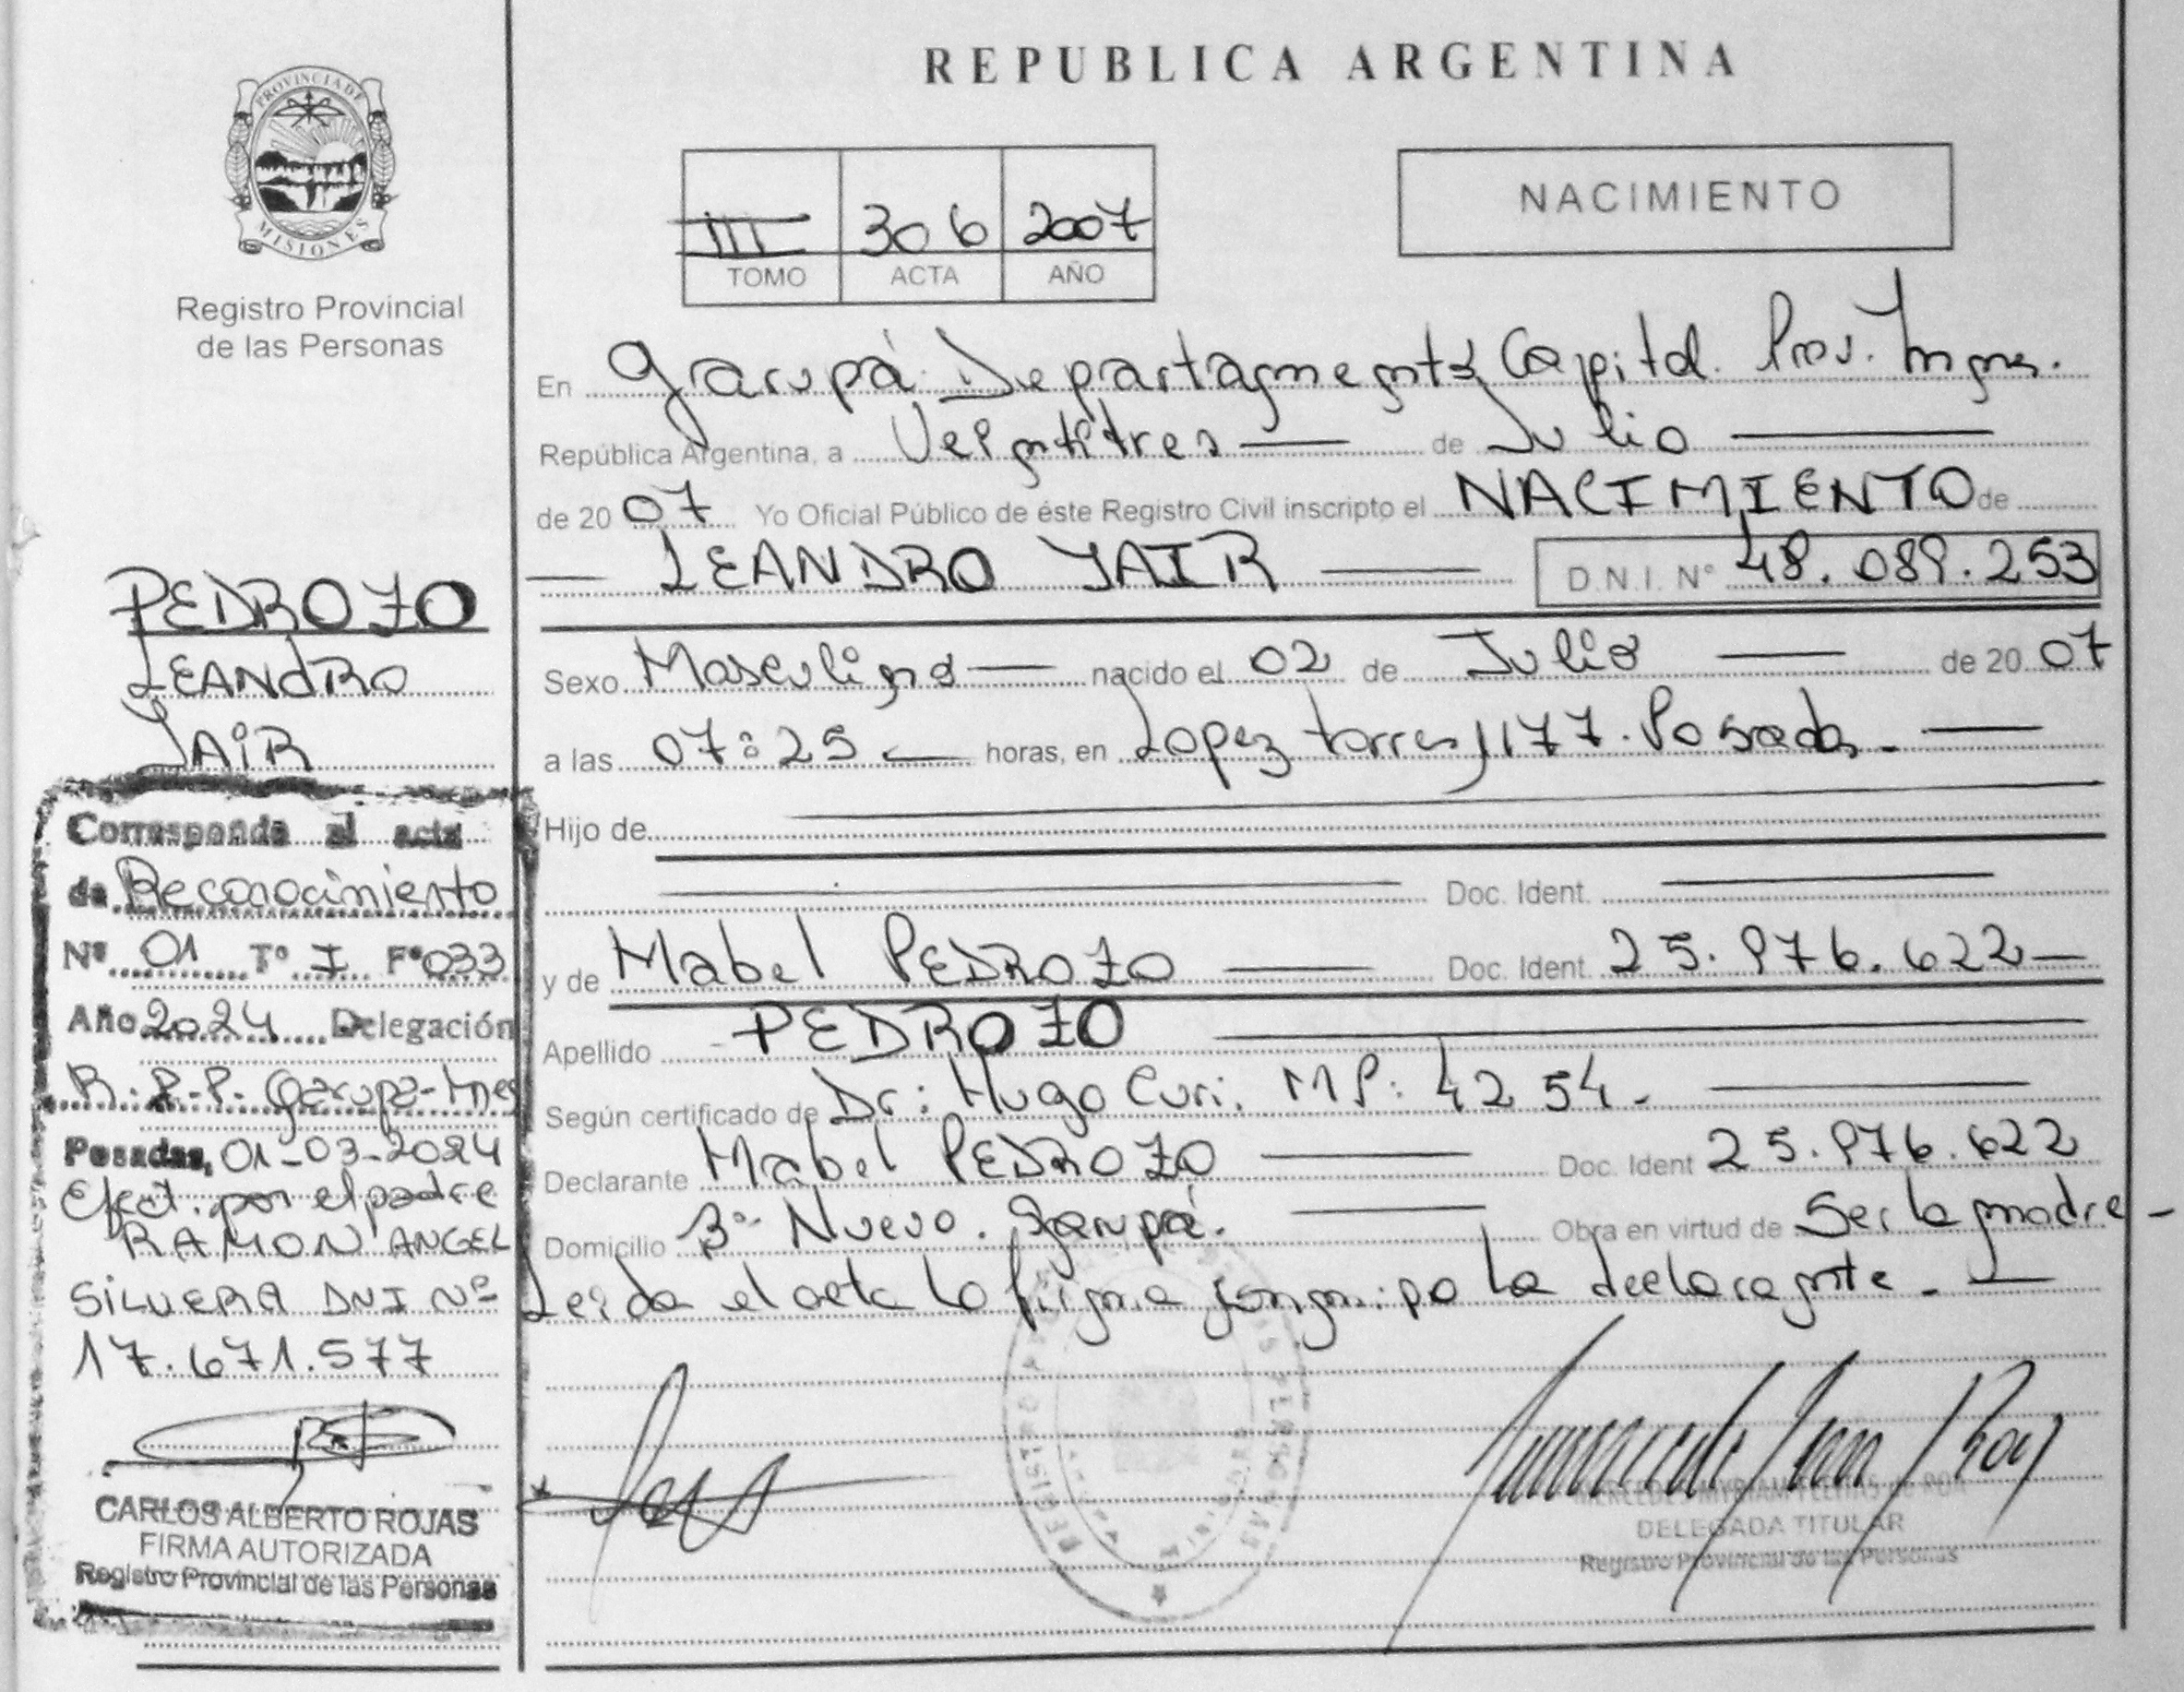 REPUBLICA ARGENTINA
PROVINCIA DE
MISIONES
Registro Provincial
de las Personas
III 306 2007
TOMO ACTA AÑO
NACIMIENTO
En Garupá Departamento Capital. Prov. Mnes.
República Argentina, a Veintitres de Julio
de 2007 Yo Oficial Público de éste Registro Civil inscripto el NACIMIENTO de
LEANDRO JAIR D.N.I. N° 48.089.253
Sexo Masculino nacido el 02 de Julio de 2007
a las 07:25 horas, en Lopez torres 1177. Posadas.
Hijo de
Doc. Ident.
y de Mabel PEDROZO Doc. Ident 25.976.622
Apellido PEDROZO
Según certificado de Dr: Hugo Curi. MP: 4254.
Declarante Mabel PEDROZO Doc. Ident 25.976.622
Domicilio B° Nuevo. Garupá. Obra en virtud de Ser la madre
Leida el acta la firma conmigo la declarante.
DELEGADA TITULAR
Registro Provincial de las Personas
PEDROZO
LEANDRO
JAIR
Corresponde al acta
de Reconocimiento
N° 01 T° I F° 033
Año 2024 Delegación
R.P.P. Garupa-Mnes
Posadas, 01-03-2024
Efect. por el padre
RAMON ANGEL
SILVERA DNI N°
17.671.577
CARLOS ALBERTO ROJAS
FIRMA AUTORIZADA
Registro Provincial de las Personas